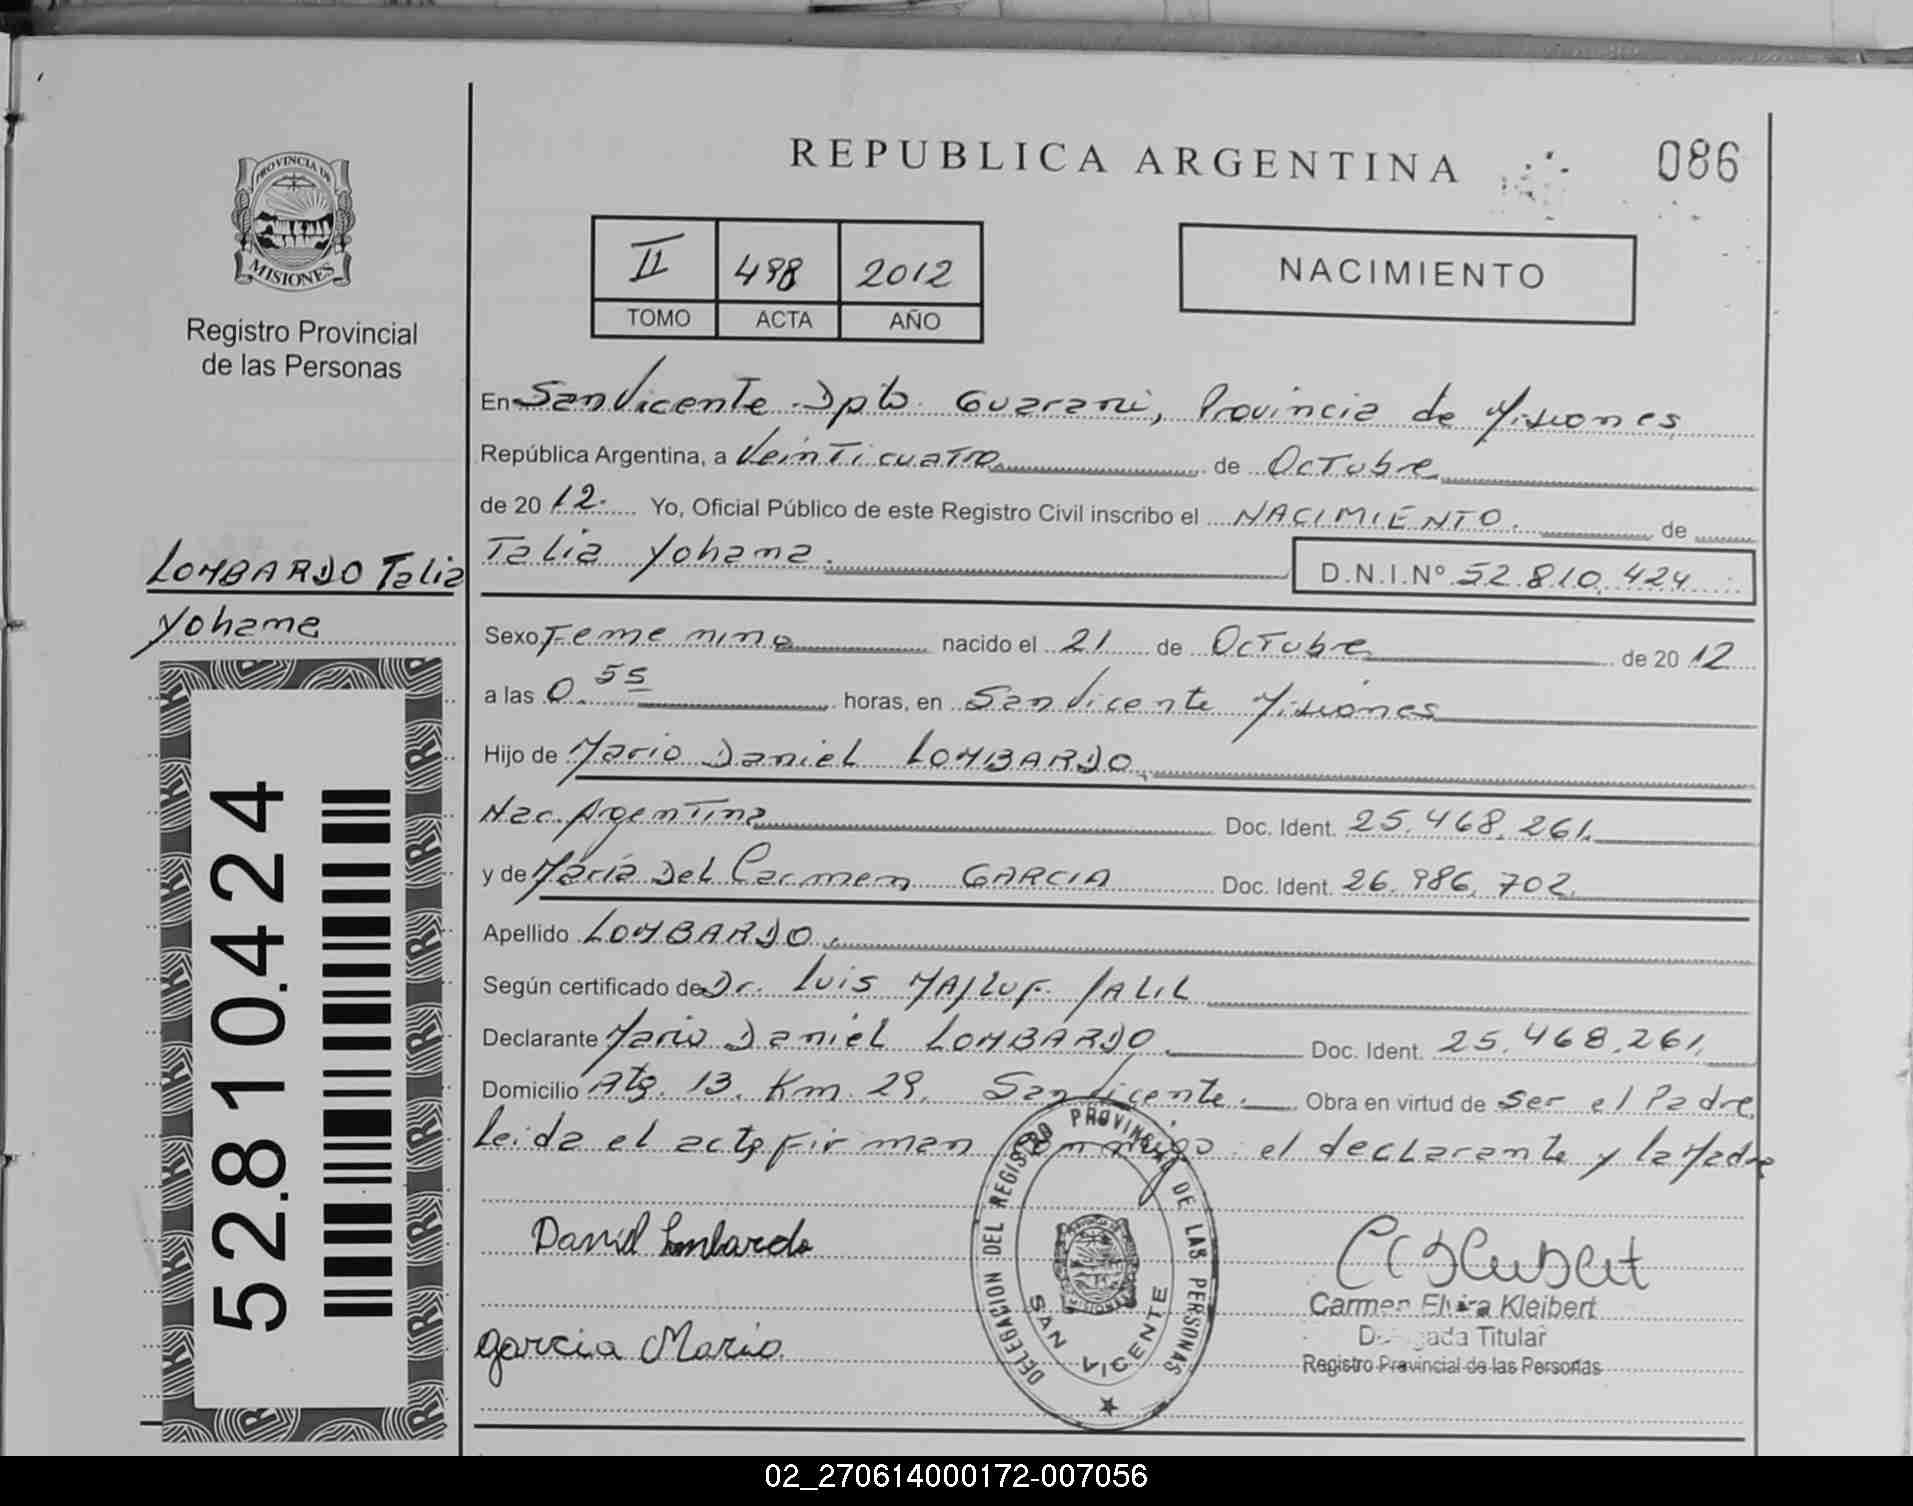 REPUBLICA ARGENTINA
086
PROVINCIA DE
MISIONES
Registro Provincial
de las Personas
II 498 2012
TOMO ACTA AÑO
NACIMIENTO
En San Vicente Dpto Guarani, Provincia de Misiones
República Argentina, a Veinticuatro de Octubre
de 2012. Yo, Oficial Público de este Registro Civil inscribo el NACIMIENTO. de
Talia Yohana.
D.N.I.Nº 52.810.424
LOMBARDO Talia
Yohana
Sexo Femenino nacido el 21 de Octubre de 2012
a las 0.55 horas, en San Vicente Misiones
Hijo de Mario Daniel LOMBARDO.
Nac. Argentina Doc. Ident. 25.468.261.
y de María Del Carmen GARCIA Doc. Ident. 26.986.702.
Apellido LOMBARDO.
Según certificado de Dr. Luis MAJLUF JALIL
Declarante Mario Daniel LOMBARDO. Doc. Ident. 25.468.261.
Domicilio Rta. 13. Km. 29. San Vicente. Obra en virtud de Ser el Padre
Leida el acta firman conmigo el declarante y la Madre
52.810.424
Daniel Lombardo
garcia Maria
DELEGACION DEL REGISTRO PROVINCIAL DE LAS PERSONAS
SAN VICENTE
Carmen Elvira Kleibert
Delegada Titular
Registro Provincial de las Personas
02_270614000172-007056